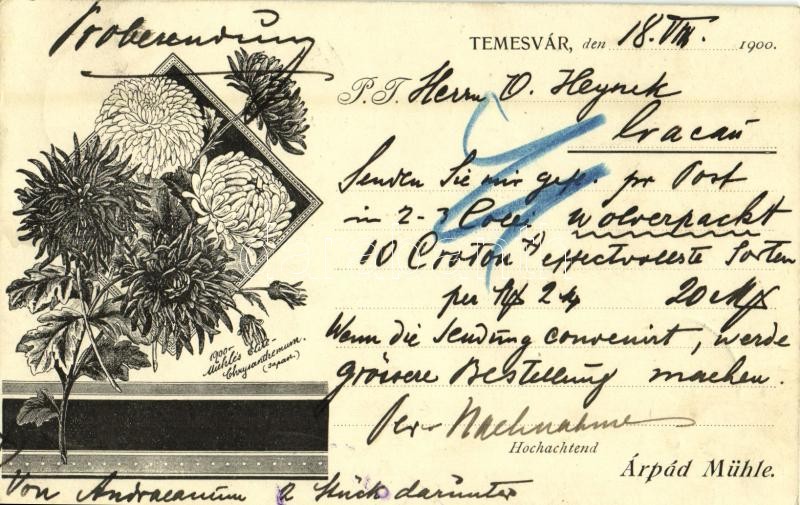 Probesendung
TEMESVÁR, den 18. VIII. 1900.
P. T. Herrn O. Heynek
Cracau
Senden Sie mir gefl. pr Post
in 2-3 Colli wolverpackt
10 Croton x) effectvollste Sorten
per 2 20
Wenn die Sendung convenirt, werde
grössere Bestellung machen.
Per Nachnahme
Hochachtend
Árpád Mühle.
1900-
Mühle's Elite-
Chrysanthemum.
(Japan.)
Von Andraeanum 2 Stück darunter